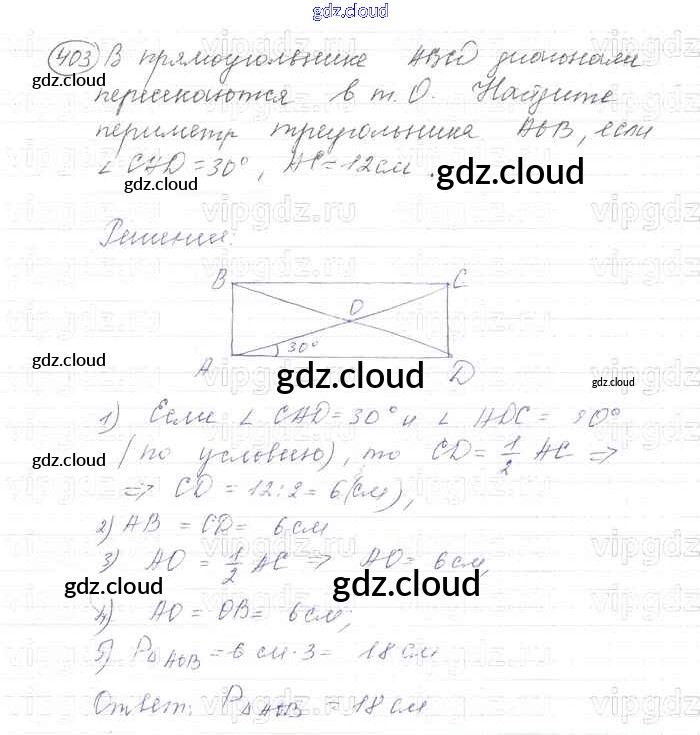 gdz.cloud
403 В прямоугольнике ABCD диагонали
gdz.cloud
пересекаются в т. О. Найдите
периметр треугольника AOB, если
∠ CAD = 30°, AC = 12 см.
gdz.cloud
gdz.cloud
vipgdz.ru
Решение:
B C
O
30°
A D
gdz.cloud
gdz.cloud
gdz.cloud
1) Если ∠ CAD = 30° и ∠ ADC = 90°
(по условию), то CD = 1/2 AC ⇒
gdz.cloud
⇒ CD = 12 : 2 = 6 (см),
2) AB = CD = 6 см
3) AO = 1/2 AC ⇒ AO = 6 см,
gdz.cloud
gdz.cloud
4) AO = OB = 6 см;
5) P△AOB = 6 см · 3 = 18 см
Ответ: P△AOB = 18 см
gdz.cloud